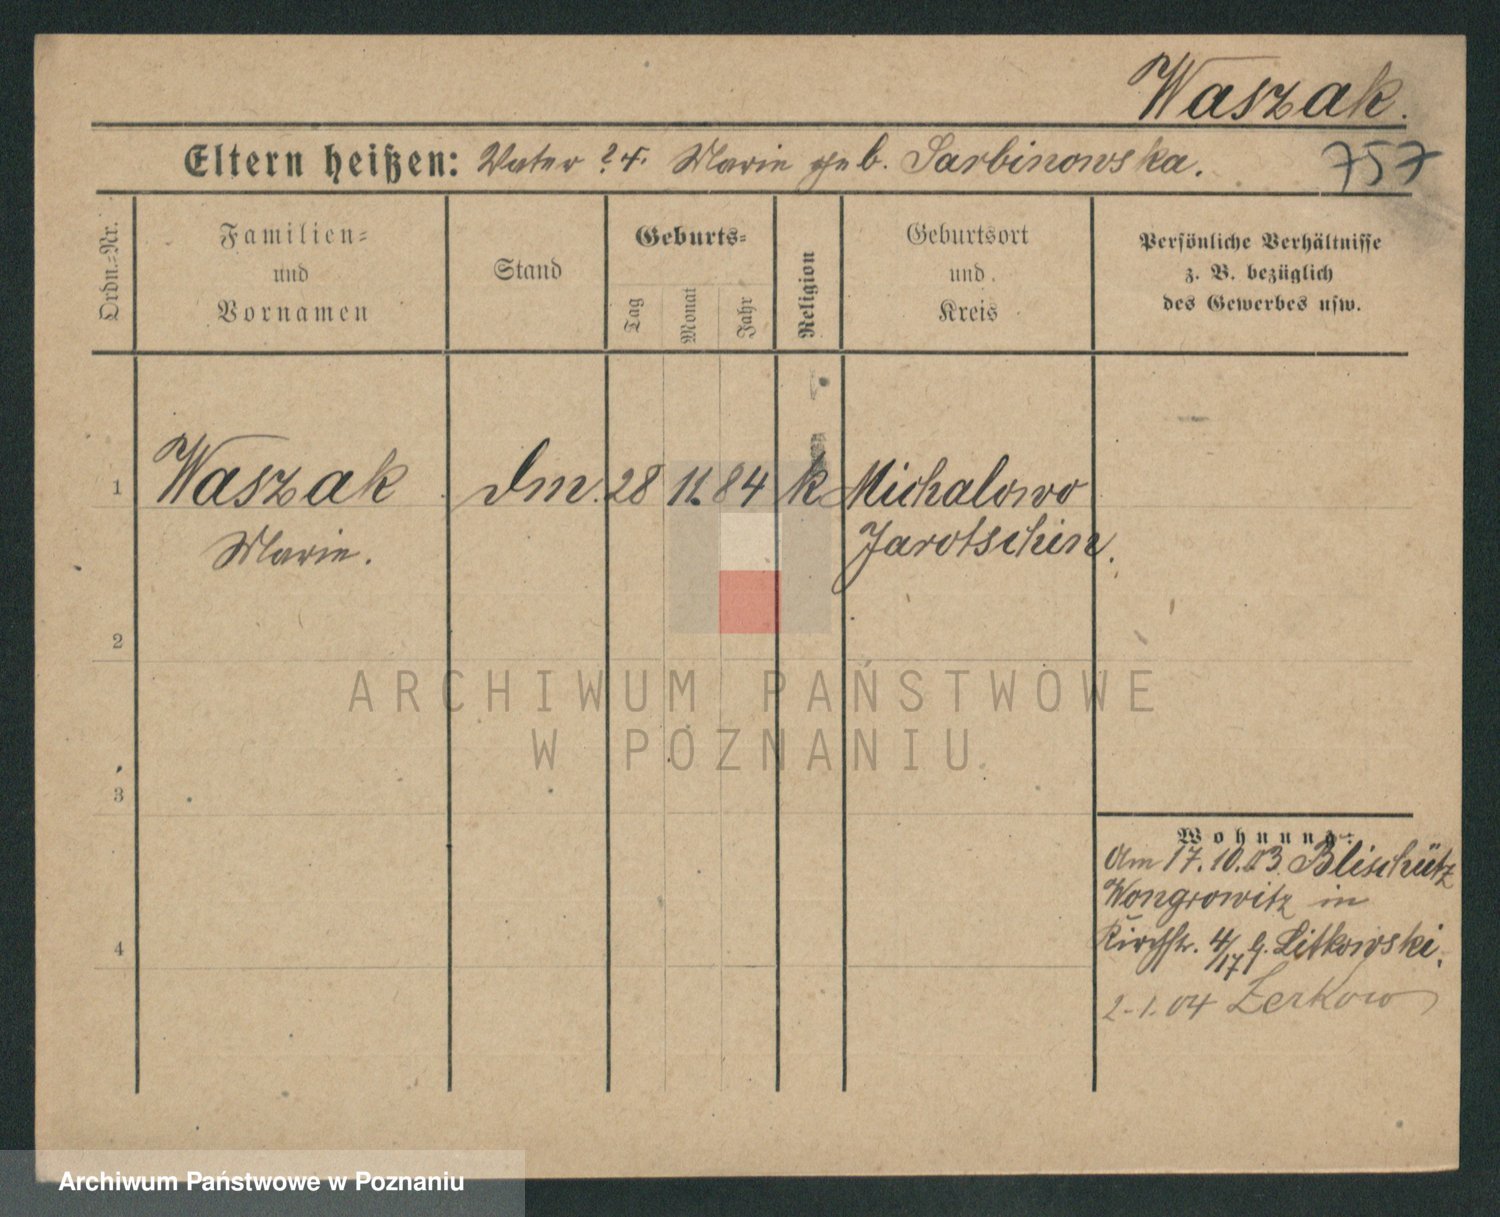 Waszak.
Eltern heißen: Vater ? u. Marie geb. Sarbinowska.
757
Ordn.-Nr.
Familien-
und
Vornamen
Stand
Geburts-
Tag
Monat
Jahr
Religion
Geburtsort
und
Kreis
Persönliche Verhältnisse
z. B. bezüglich
des Gewerbes usw.
1
Waszak
Dm.
28
11.
84
k
Michalowo
Marie.
Jarotschin.
2
3
4
Wohnung:
Am 17.10.03. Blischütz
Wongrowitz in
Kirchstr. 4/17 b. Litkowski.
2.1.04 Zerkow
ARCHIWUM PAŃSTWOWE
W POZNANIU
Archiwum Państwowe w Poznaniu